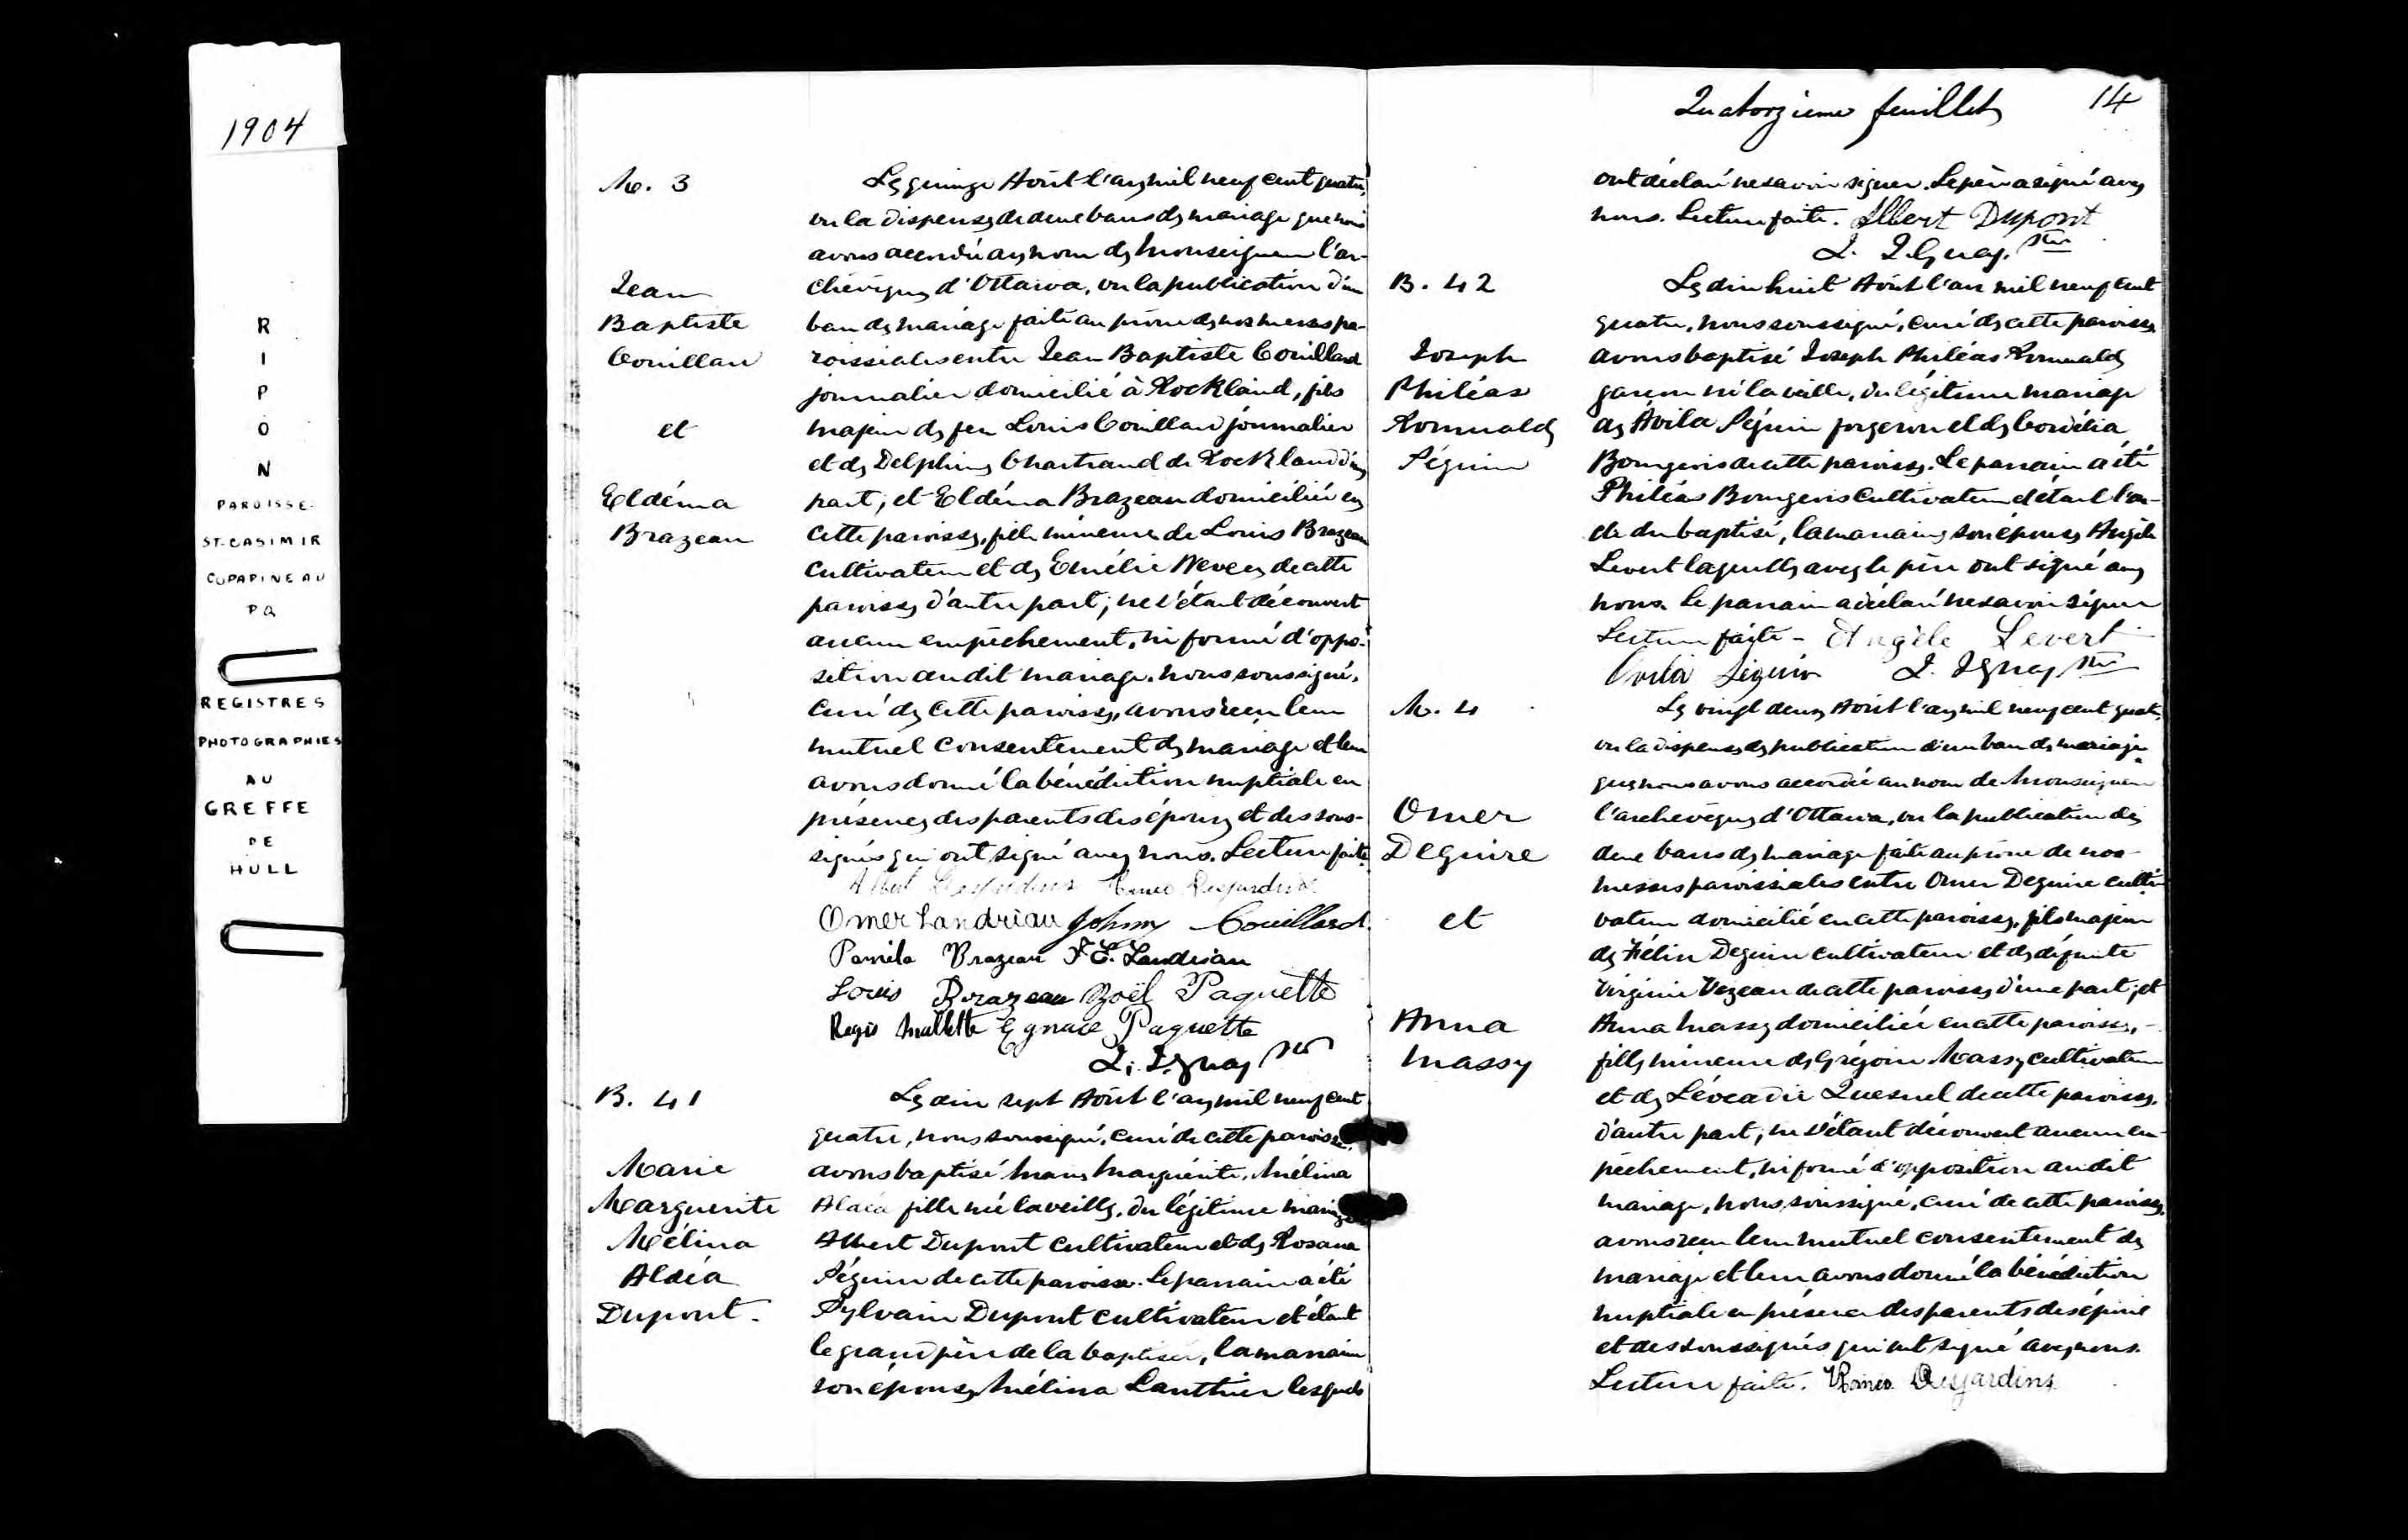 1904
R
I
P
O
N
PAROISSE
ST-CASIMIR
CO PAPINEAU
PQ
REGISTRES
PHOTOGRAPHIES
AU
GREFFE
DE
HULL
M. 3
Jean
Baptiste
Couillard
et
Eldéma
Brazeau
Le quinze Août l'an mil neuf cent quatre,
vu la dispense de deux bans de mariage que nous
avons accordée au nom de Monseigneur l'ar-
chevêque d'Ottawa, vu la publication d'un
ban de mariage faite au prône de nos messes pa-
roissiales entre Jean Baptiste Couillard
journalier domicilié à Rockland, fils
majeur de feu Louis Couillard journalier
et de Delphine Chartrand de Rockland d'une
part; et Eldéma Brazeau domiciliée en
cette paroisse, fille mineure de Louis Brazeau
cultivateur et de Emélie Neveu de cette
paroisse d'autre part; ne s'étant découvert
aucun empêchement, ni formé d'oppo-
sition au dit mariage, nous soussigné,
curé de cette paroisse, avons reçu leur
mutuel consentement de mariage et leur
avons donné la bénédiction nuptiale en
présence des parents des époux et des sous-
signés qui ont signé avec nous. Lecture faite
Desjardins
Omer Landriau Johnny Couillard
Brazeau F. E. Landriau
Louis Brazeau Zoël Paquette
Regis Mallette Egnace Paquette
B. 41
Marie
Marguerite
Mélina
Aldéa
Dupont.
Le dix sept Août l'an mil neuf cent
quatre, nous soussigné, curé de cette paroisse
avons baptisé Marie Marguerite, Mélina
Aldéa fille née la veille, du légitime mariage
Albert Dupont cultivateur et de Rosanna
Séguin de cette paroisse. Le parrain a été
Sylvain Dupont cultivateur et étant
le grand père de la baptisée, la marraine
son épouse Mélina Lanthier lesquels
Quatorzieme feuillet 14
ont déclaré ne savoir signer. Le père a signé avec
nous. Lecture faite. Albert Dupont
B. 42
Joseph
Philéas
Romuald
Séguin
Le dix huit Août l'an mil neuf cent
quatre, nous soussigné, curé de cette paroisse
avons baptisé Joseph Philéas Romuald
garçon né la veille, du légitime mariage
de Avila Séguin forgeron et de Cordélia
Bourgeois de cette paroisse. Le parrain a été
Philéas Bourgeois cultivateur et étant l'on-
cle du baptisé, la marraine son épouse Angèle
Levert laquelle avec le père ont signé avec
nous. Le parrain a déclaré ne savoir signer
Lecture faite - Angèle Levert
Avila Séguin
M. 4
Omer
Deguire
et
Anna
Massy
Le vingt deux Août l'an mil neuf cent quatre,
vu la dispense de publication d'un ban de mariage
que nous avons accordée au nom de Monseigneur
l'archevêque d'Ottawa, vu la publication de
deux bans de mariage faite au prône de nos
messes paroissiales entre Omer Deguire culti-
vateur domicilié en cette paroisse, fils majeur
de Deguire cultivateur et de défunte
Virginie Vezeau de cette paroisse d'une part; et
Anna Massy domiciliée en cette paroisse, -
fille mineure de Grégoire Massy cultivateur
et de Léocadie Quesnel de cette paroisse,
d'autre part; ne s'étant découvert aucun em-
pêchement, ni formé d'opposition au dit
mariage, nous soussigné, curé de cette paroisse,
avons reçu leur mutuel consentement de
mariage et leur avons donné la bénédiction
nuptiale en présence des parents des époux
et des soussignés qui ont signé avec nous.
Lecture faite. Desjardins